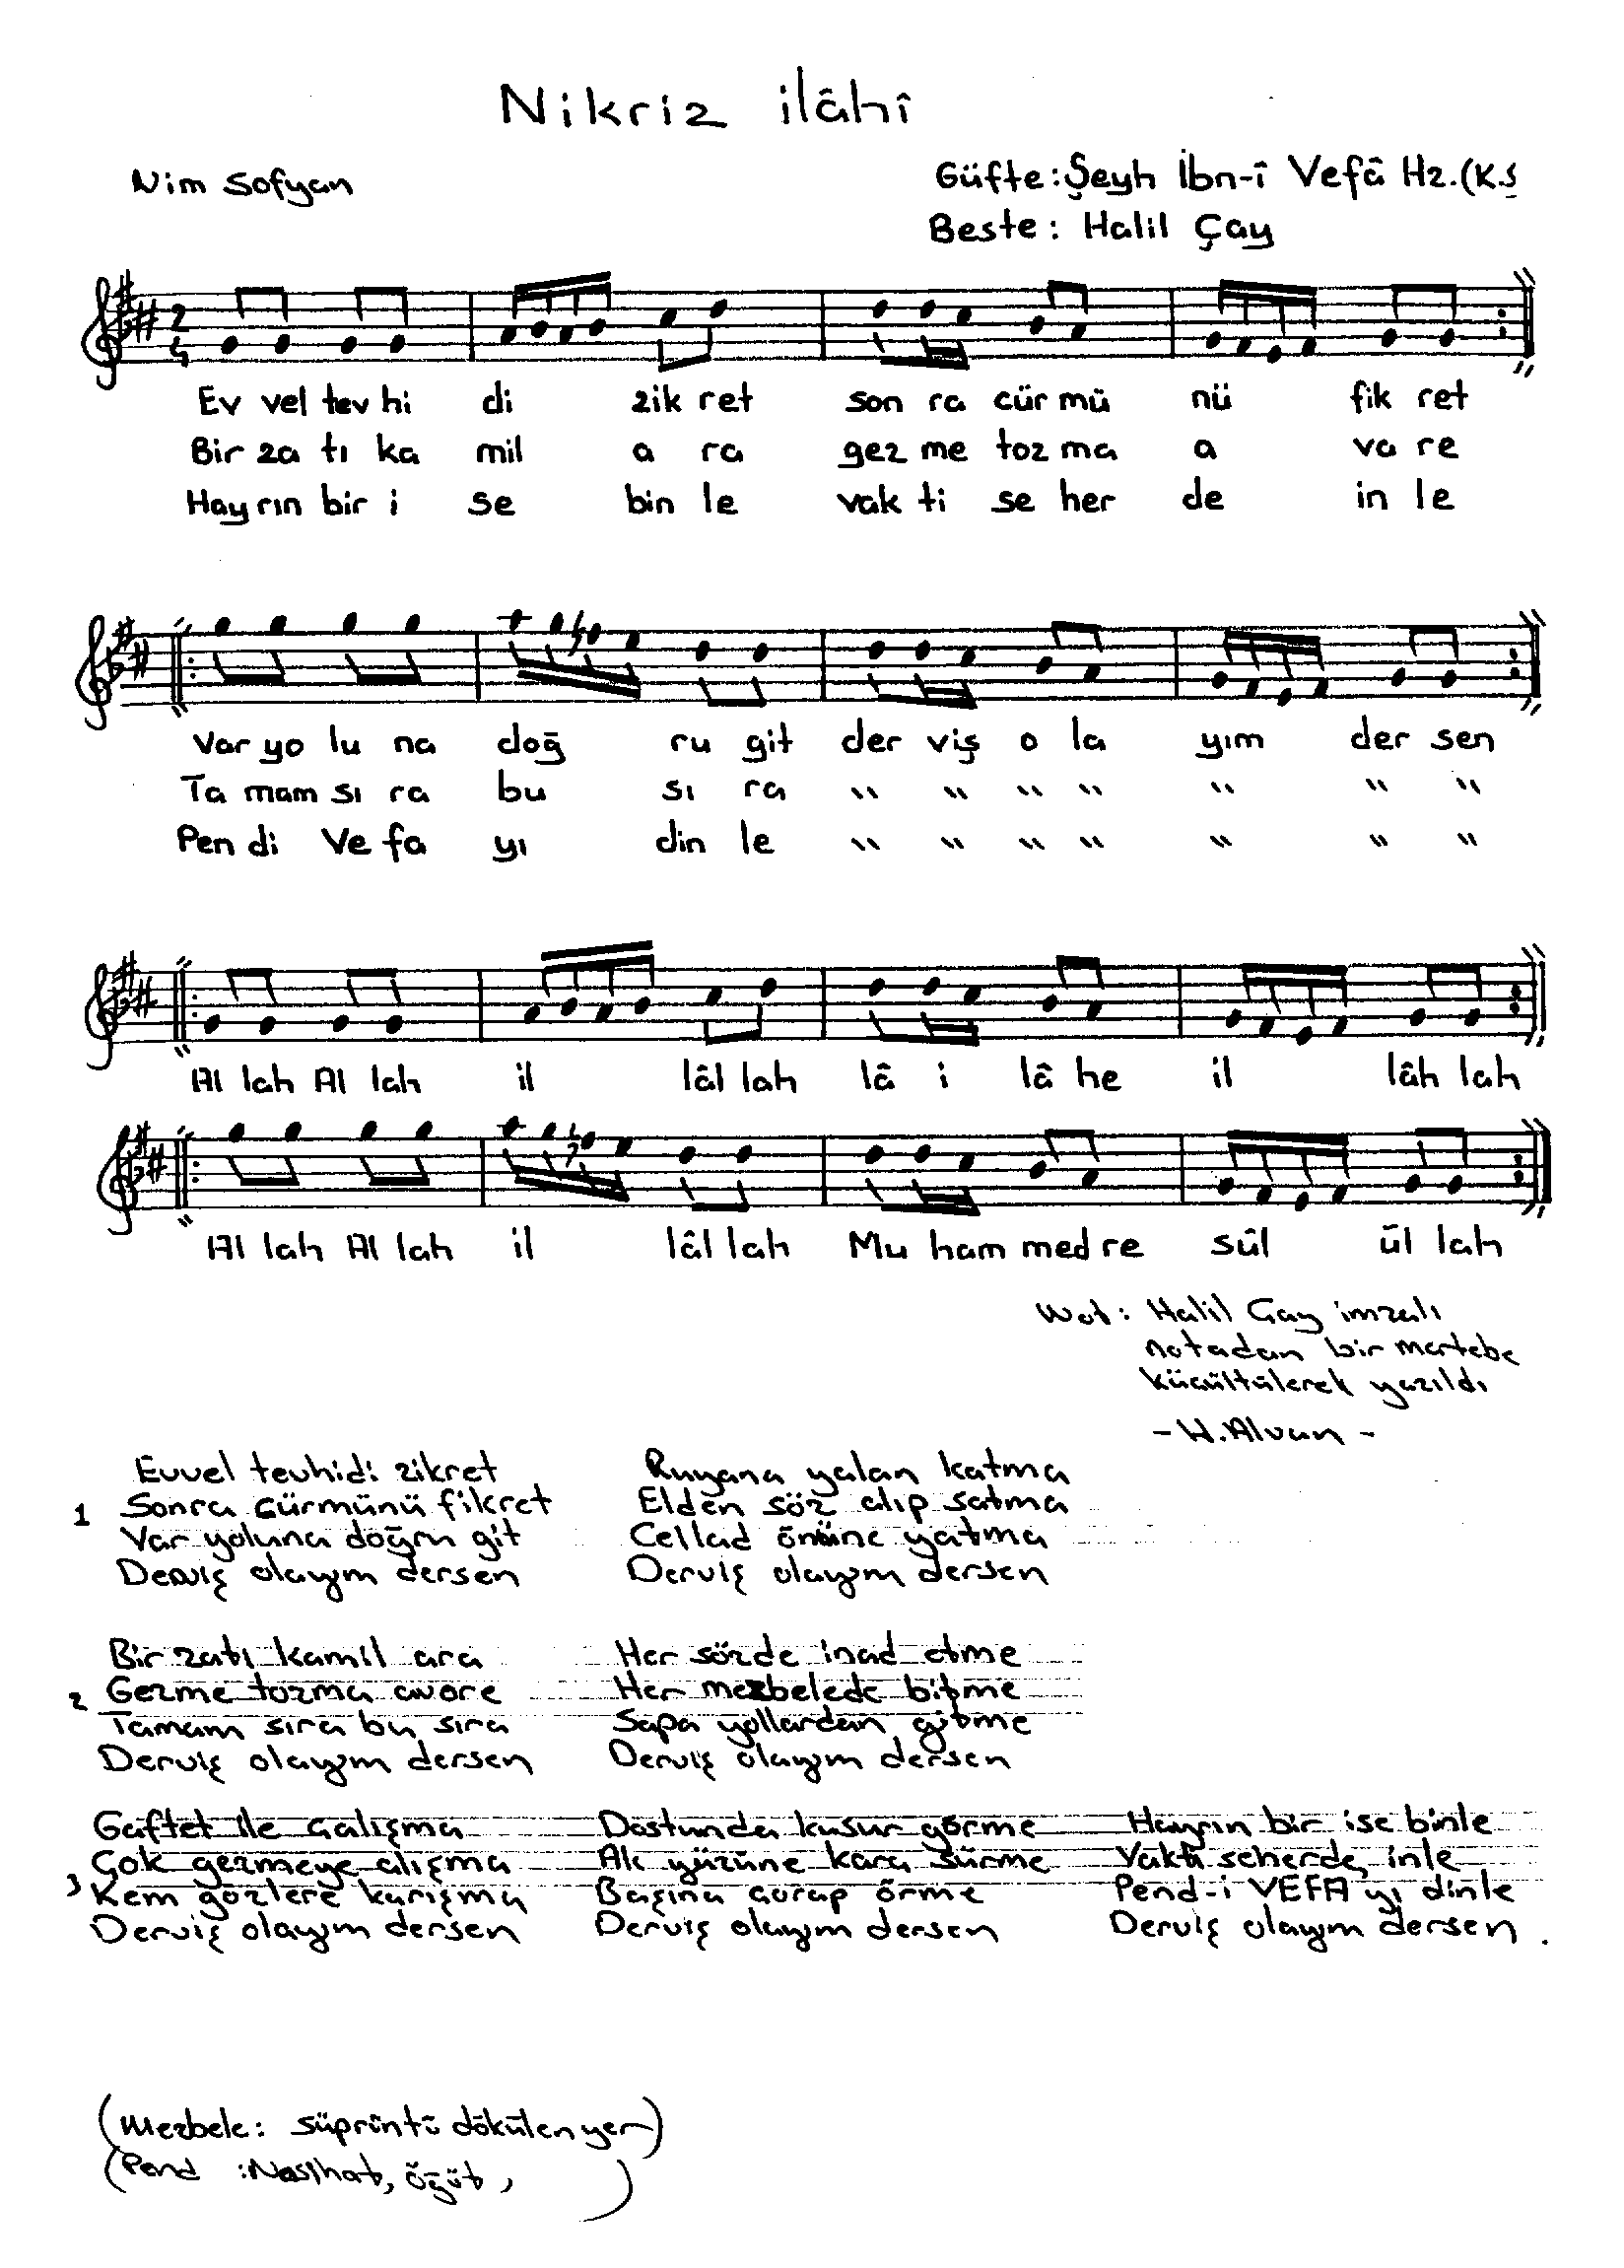 Nikriz ilâhî
Nim Sofyan
Güfte: Şeyh İbn-î Vefâ Hz. (K.S
Beste: Halil Çay
2
4
Ev vel tev hi di zik ret son ra cür mü nü fik ret
Bir za tı ka mil a ra gez me toz ma a va re
Hay rın bir i se bin le vak ti se her de in le
Var yo lu na doğ ru git der viş o la yım der sen
Ta mam sı ra bu sı ra " " " " " " "
Pen di Ve fa yı din le " " " " " " "
Al lah Al lah il lâl lah lâ i lâ he il lâh lah
Al lah Al lah il lâl lah Mu ham med re sûl ül lah
Not: Halil Çay imzalı
notadan bir mertebe
küçültülerek yazıldı
- H. Alvan -
Evvel tevhidi zikret
1 Sonra cürmünü fikret
Var yoluna doğru git
Derviş olayım dersen
Ruyana yalan katma
Elden söz alıp satma
Cellad önüne yatma
Derviş olayım dersen
Bir zatı kamil ara
2 Gezme tozma avare
Tamam sıra bu sıra
Derviş olayım dersen
Her sözde inad etme
Her mezbelede bitme
Sapa yollardan gitme
Derviş olayım dersen
Gaflet ile çalışma
Çok gezmeye alışma
3 Kem gözlere karışma
Derviş olayım dersen
Dostunda kusur görme
Ak yüzüne kara sürme
Başına çorap örme
Derviş olayım dersen
Hayrın bir ise binle
Vakti seherde inle
Pend-i VEFA'yı dinle
Derviş olayım dersen.
(Mezbele: süprüntü dökülen yer)
(Pend : Nasihat, öğüt, )